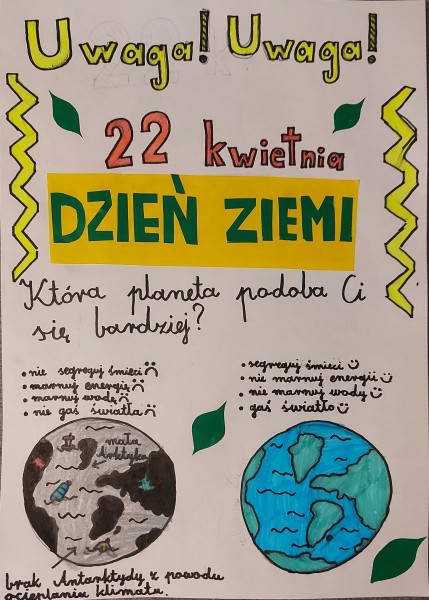 Uwaga! Uwaga!
22 kwietnia
DZIEŃ ZIEMI
Która planeta podoba Ci
się bardziej?
• nie segreguj śmieci ☹
• marnuj energię ☹
• marnuj wodę ☹
• nie gaś światła ☹
• segreguj śmieci ☺
• nie marnuj energii ☺
• nie marnuj wody ☺
• gaś światło ☺
mała
Arktyka
brak Antarktydy z powodu
ocieplania klimatu.